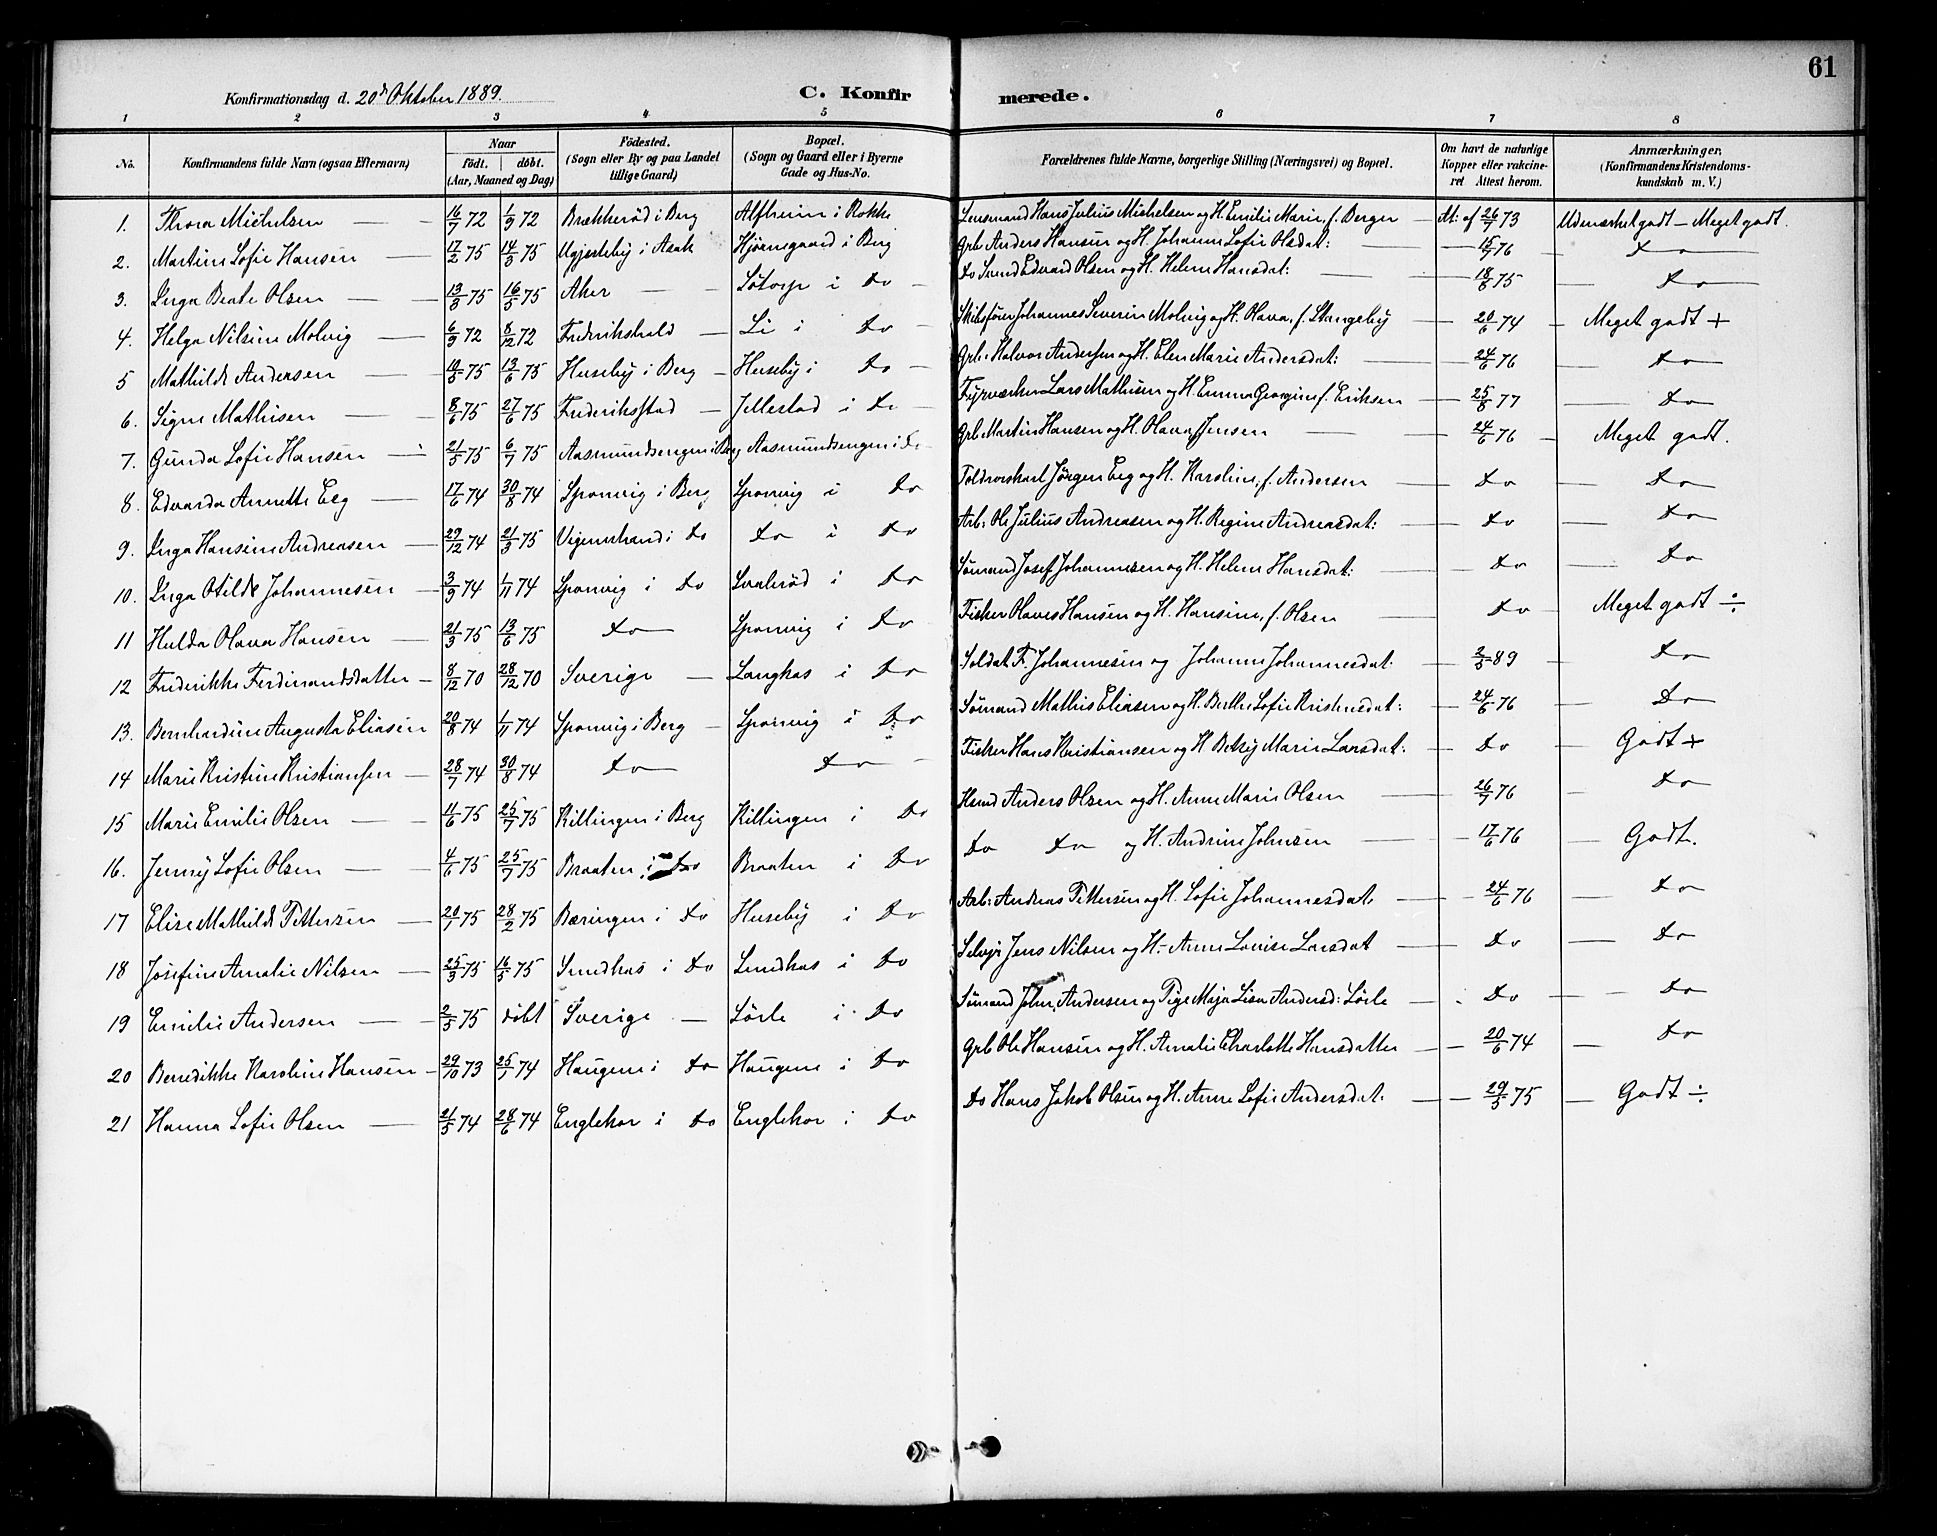 61
Konfirmationsdag d. 20d Oktober 1889. C. Konfirmerede.
1 2 3 4 5 6 7 8
No. Konfirmandens fulde Navn (ogsaa Efternavn) Naar födt. döbt. (Aar, Maaned og Dag) Födested. (Sogn eller By og paa Landet tillige Gaard) Bopæl. (Sogn og Gaard eller i Byerne Gade og Hus-No. Forældrenes fulde Navne, borgerlige Stilling (Næringsvei) og Bopæl. Om havt de naturlige Kopper eller vakcineret Attest herom. Anmærkninger, (Konfirmandens Kristendomskundskab m. V.)
1. Thora Michelsen — 16/7 72 1/9 72 Brækkerød i Berg Alfheim i Rokke Lensmand Hans Julius Michelsen og H. Emilie Marie, f. Berger — At: af 26/7 73 Udmærket godt — Meget godt.
2. Martine Sofie Hansen — 17/2 75 14/3 75 Ugjesteby i Asak Hjørnegaard i Berg Grb. Anders Hansen og H. Johanne Sofie Olsdat: — 15/7 76 Do
3. Inga Beate Olsen — 13/3 75 16/5 75 Aker — Sötorp i Do Do Svend Edvard Olsen og H. Helene Hansdat: — 18/6 75 Do
4. Helga Nilsine Molvig — 6/9 72 8/12 72 Fredrikshald — Li i Do Skibsfører Johannes Severin Molvig og H. Olava, f. Stangeby — 20/6 74 — Meget godt +
5 Mathilde Andersen — 10/5 75 13/6 75 Huseby i Berg — Huseby i Do Grb. Halvor Andersen og H. Elen Marie Andersdat: — 24/6 76 — Do
6. Signe Mathisen — 8/6 75 27/6 75 Frederikstad — Jellestad i Do Fyrværker Lars Mathisen og H. Emma Georgine f. Eriksen — 25/8 77 — Do
7. Gunda Sofie Hansen — 21/5 75 6/7 75 Aasmundsengen i Berg Aasmundsengen i Do Grb. Martin Hansen og H. Olava Jensen — 24/6 76 — Meget godt.
8. Edvarda Annette Eeg — 17/6 74 30/8 74 Sponvig i Berg Sponvig i Do Toldroskarl Jørgen Eeg og H. Karoline, f. Andersen — Do — Do
9. Inga Hansine Andreasen — 29/12 74 21/3 75 Vigenstrand i Do Do i Do Arb: Ole Julius Andreasen og H. Regine Andreasdat: — Do — Do
10. Inga Otilde Johannesen — 3/9 74 1/11 74 Sponvig i Do Svalerød i Do Sømand Josef Johannesen og H. Helene Hansdat: — Do — Do
11 Hulda Olava Hansen — 21/3 75 13/6 75 Do Sponvig i Do Fisker Olaves Hansen og H. Hansine, f. Olsen — Do — Meget godt ÷
12 Frederikke Ferdinandsdatter — 8/12 70 28/12 70 Sverige — Langhas i Do Soldat F. Johannesen og Johanne Johannesdat. — 2/3 89 — Do
13. Bernhardine Augusta Eliasen 20/8 74 1/11 74 Sponvig i Berg — Sponvig i Do Sømand Mathis Eliasen og H. Berthe Sofie Kristensdat: — 24/6 76 — Do
14 Marie Kristine Kristiansen — 28/7 74 30/8 74 Do Do Fisker Hans Kristiansen og H. Betsy Marie Larsdat: — Do — Godt +
15 Marie Emilie Olsen — 11/6 75 25/7 75 Killingen i Berg Killingen i Do Hsmd Anders Olsen og H. Anne Marie Olsen — 26/7 76 — Do
16. Jenny Sofie Olsen — 4/6 75 25/7 75 Braaten i Do Braaten i Do Do Do og H. Andrine Johnsen — 17/6 76 — Godt.
17 Elise Mathilde Pettersen — 20/1 75 28/2 75 Bæringen i Do Huseby i Do Arb: Andreas Pettersen og H. Sofie Johannesdat. — 24/6 76 — Do
18 Josefine Amalie Nilsen — 25/3 75 16/5 75 Smedhas i Do Smedhas i Do Selvejr Jens Nilsen og H. Anne Lovise Larsdat — Do — Do
19 Emilie Andersen — 2/5 75 döbt Sverige — Sörle i Do Sømand Johs. Andersen og Pige Maja Lisa Andersd: Sörle — Do — Do
20 Benedikke Karoline Hansen — 29/10 73 25/1 74 Haugene i Do Haugene i Do Grb Ole Hansen og H. Amalie Charlotte Hansdatter — 20/6 74 — Do
21 Hanna Sofie Olsen — 21/5 74 28/6 74 Englekor i Do Englekor i Do Do Hans Jakob Olsen og H. Anne Sofie Andersdat: — 29/5 75 — Godt ÷